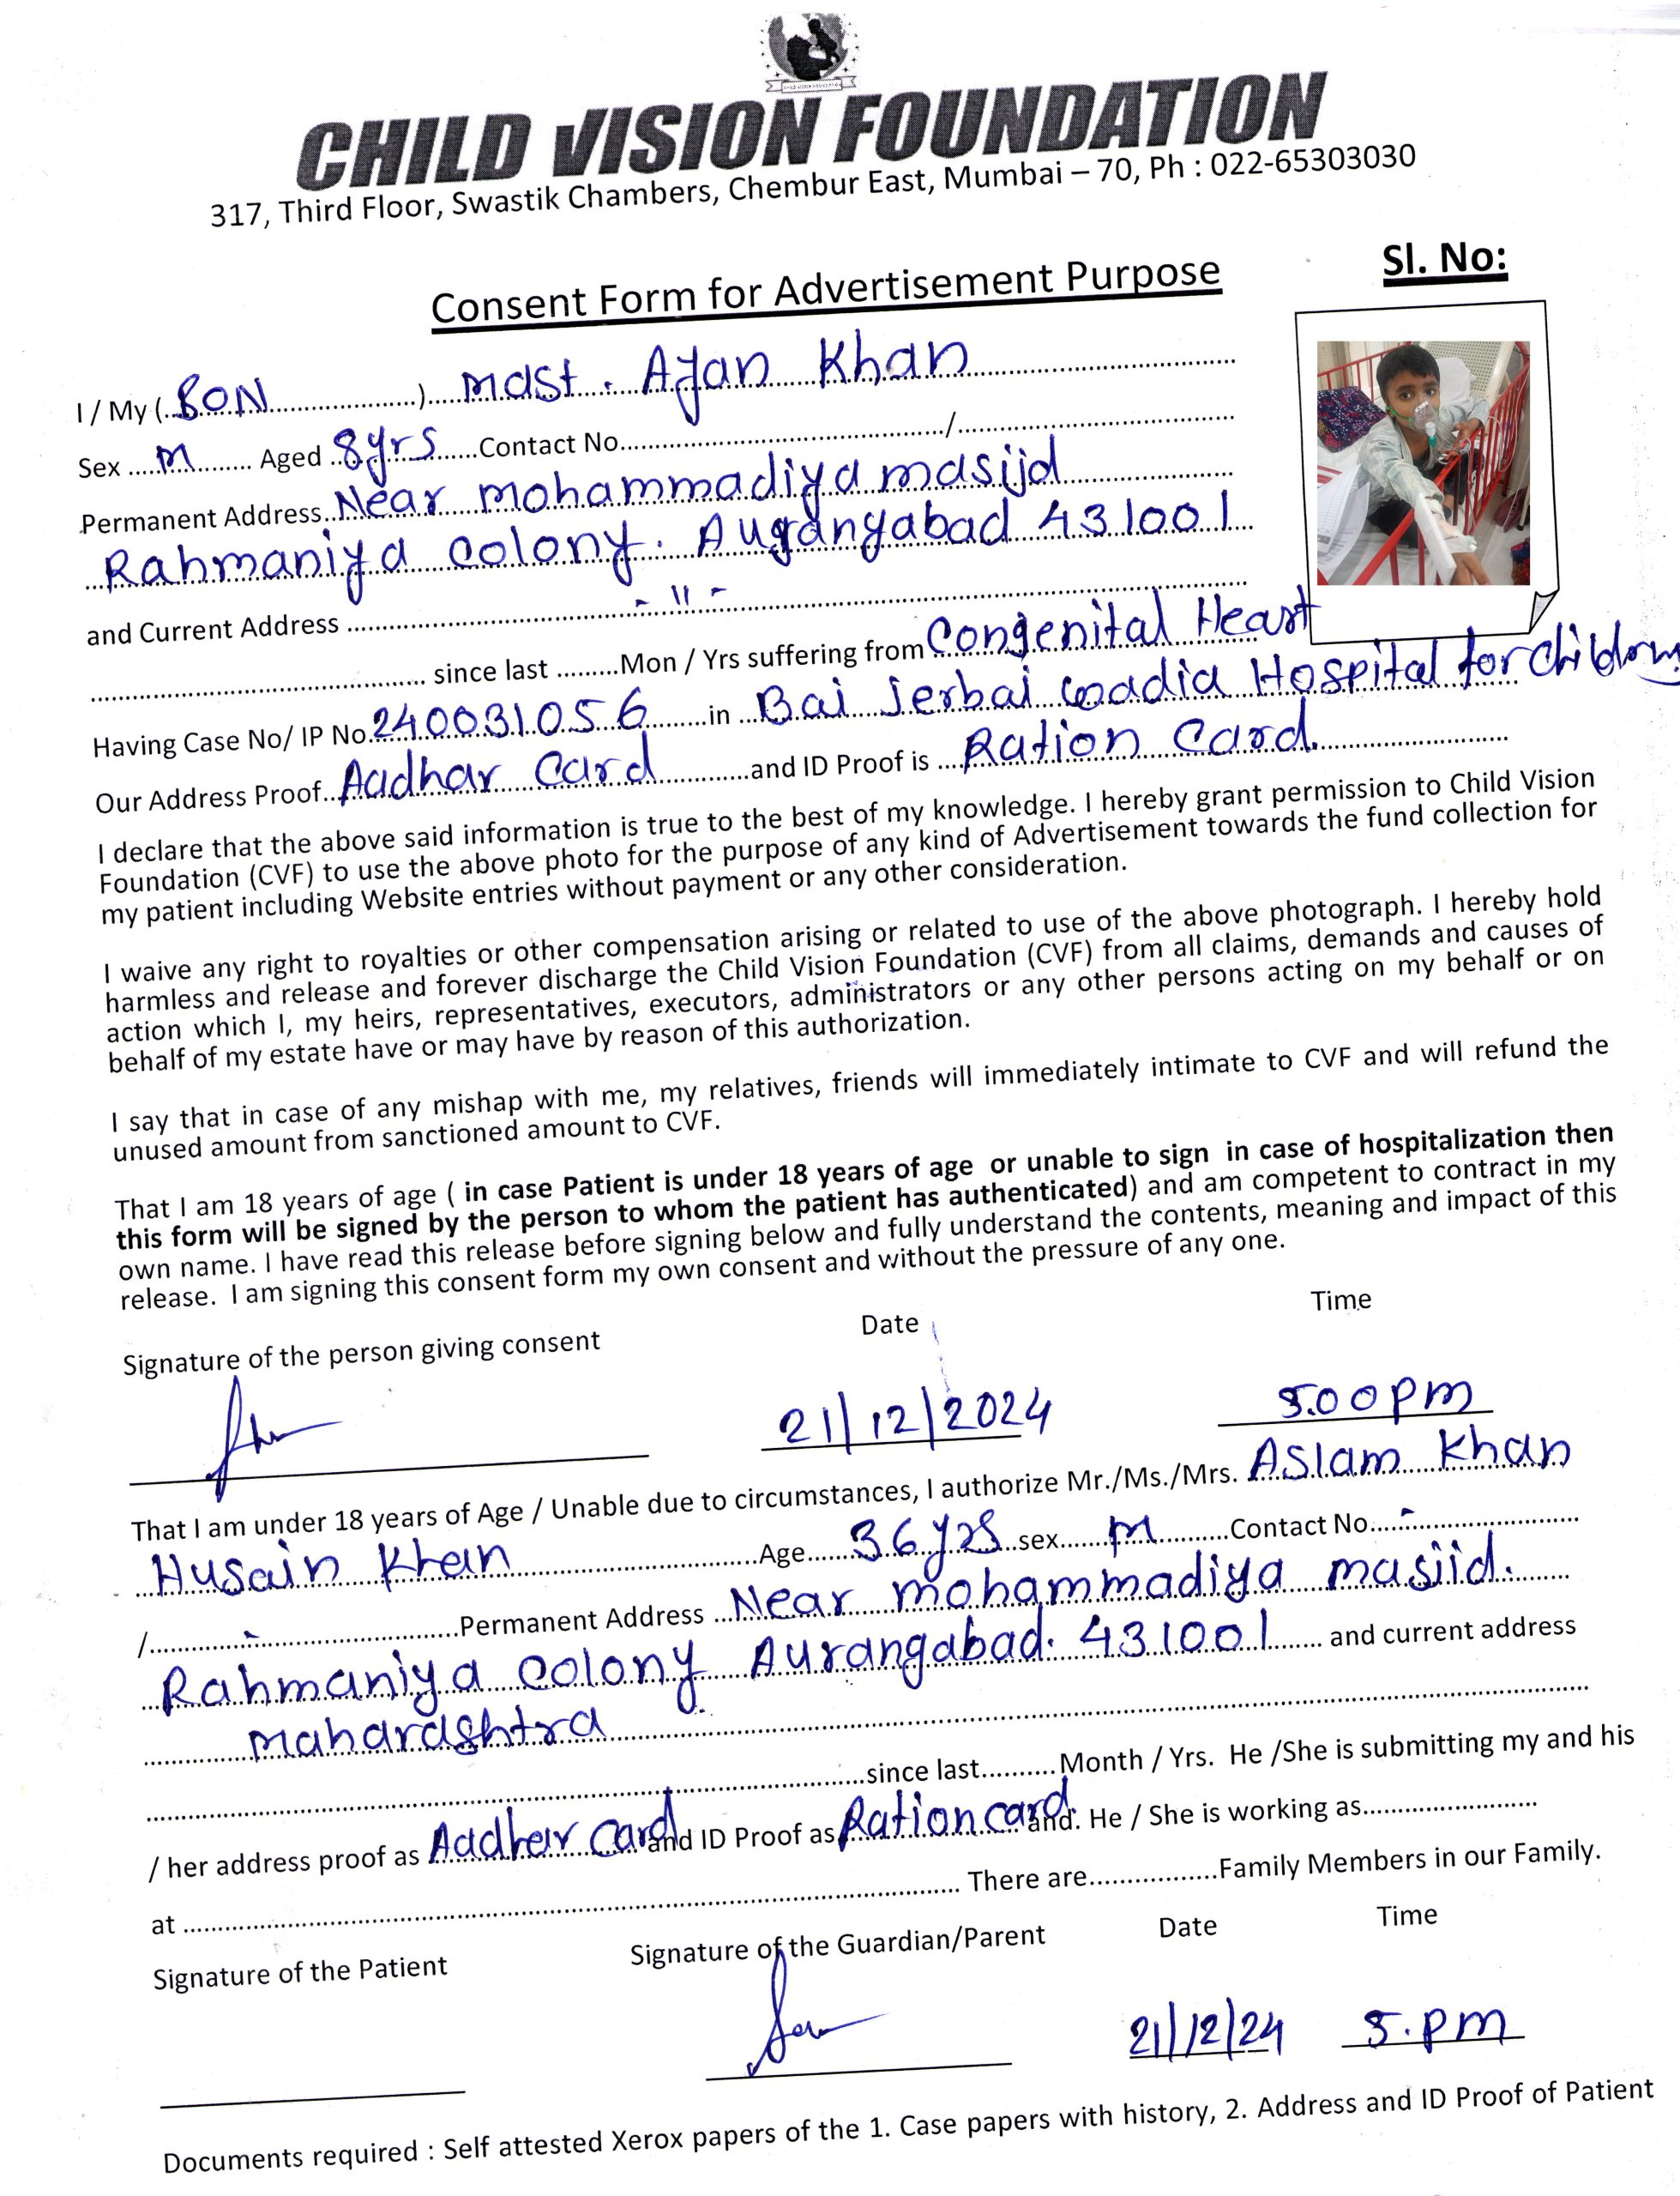 CHILD VISION FOUNDATION
317, Third Floor, Swastik Chambers, Chembur East, Mumbai – 70, Ph : 022-65303030
Sl. No:
Consent Form for Advertisement Purpose
I / My (..SON....................)....mast. Ajan Khan
Sex ....M......... Aged 8yrs......Contact No................................................/................................................
Permanent Address..Near mohammadiya masijd
Rahmaniya colony. Augangabad 431001
and Current Address ........-11-........
................................................ since last .........Mon / Yrs suffering from Congenital Heart
Having Case No/ IP No.240031056.........in ...Bai Jerbai wadia Hospital for children
Our Address Proof...Aadhar Card.............and ID Proof is ...Ration Card.
I declare that the above said information is true to the best of my knowledge. I hereby grant permission to Child Vision
Foundation (CVF) to use the above photo for the purpose of any kind of Advertisement towards the fund collection for
my patient including Website entries without payment or any other consideration.
I waive any right to royalties or other compensation arising or related to use of the above photograph. I hereby hold
harmless and release and forever discharge the Child Vision Foundation (CVF) from all claims, demands and causes of
action which I, my heirs, representatives, executors, administrators or any other persons acting on my behalf or on
behalf of my estate have or may have by reason of this authorization.
I say that in case of any mishap with me, my relatives, friends will immediately intimate to CVF and will refund the
unused amount from sanctioned amount to CVF.
That I am 18 years of age ( in case Patient is under 18 years of age or unable to sign in case of hospitalization then
this form will be signed by the person to whom the patient has authenticated) and am competent to contract in my
own name. I have read this release before signing below and fully understand the contents, meaning and impact of this
release. I am signing this consent form my own consent and without the pressure of any one.
Signature of the person giving consent Date Time
21/12/2024 5.00pm
That I am under 18 years of Age / Unable due to circumstances, I authorize Mr./Ms./Mrs. Aslam Khan
Husain Khan....................Age......36yrs..sex......M..........Contact No....-....................
/..............-..............................Permanent Address ..Near mohammadiya masjid.
Rahmaniya colony Aurangabad. 431001........ and current address
maharashtra
................................................since last..........Month / Yrs. He /She is submitting my and his
/ her address proof as Aadhar Card and ID Proof as Ration card. and. He / She is working as.........................
at ................................................ There are..................Family Members in our Family.
Signature of the Patient Signature of the Guardian/Parent Date Time
21/12/24 5.pm
Documents required : Self attested Xerox papers of the 1. Case papers with history, 2. Address and ID Proof of Patient